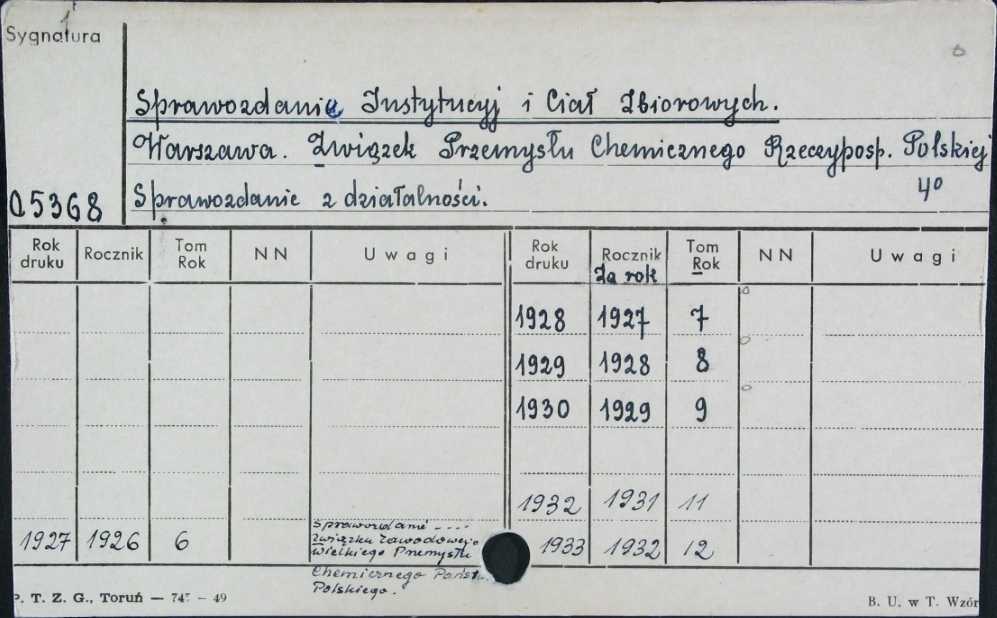 Sygnatura
Sprawozdanie Instytucyj i Ciał Zbiorowych.
Warszawa. Związek Przemysłu Chemicznego Rzeczyposp. Polskiej
05368 Sprawozdanie z działalności. 4°
Rok druku Rocznik Tom Rok NN Uwagi Rok druku Rocznik Za rok Tom Rok NN Uwagi
1928 1927 7
1929 1928 8
1930 1929 9
1932 1931 11
1927 1926 6 Sprawozdanie .... 1933 1932 12
Związku Zawodowego
Wielkiego Przemysłu
Chemicznego Państ.
Polskiego.
P. T. Z. G., Toruń — 747 - 49 B. U. w T. Wzór